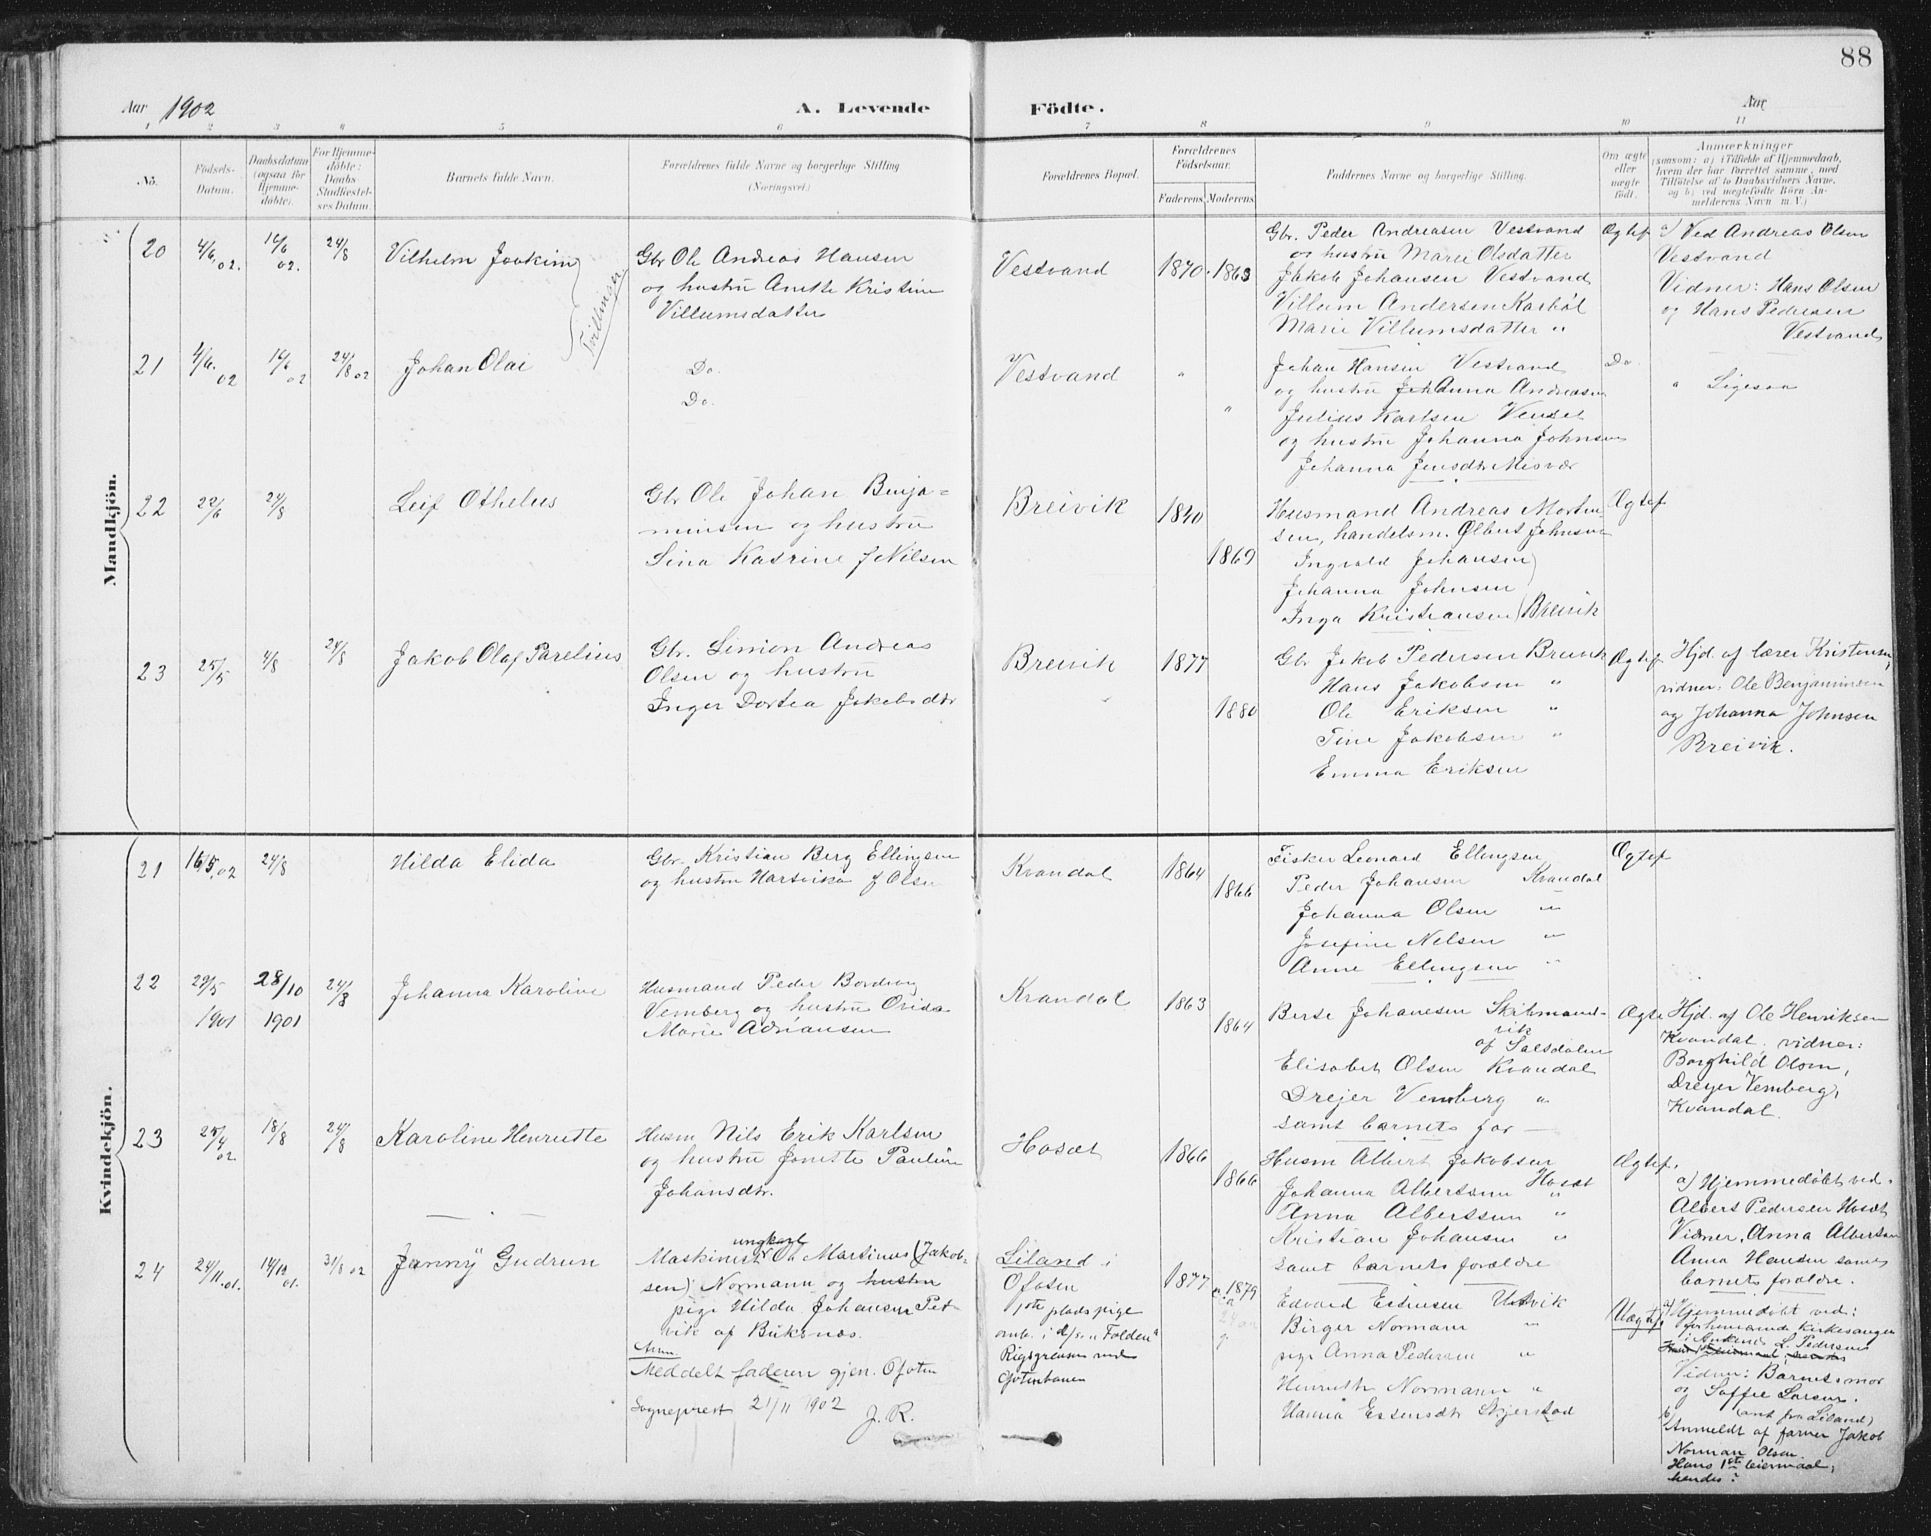 88
Aar 1902
A. Levende Födte.
Aar
1 2 3 4 5 6 7 8 9 10 11
No.
Födsels-Datum.
Daabsdatum (ogsaa for Hjemme-döbte).
For Hjemme-döbte: Daabs Stadfæstel-ses Datum.
Barnets fulde Navn.
Forældrenes fulde Navne og borgerlige Stilling (Næringsvei.)
Forældrenes Bopæl.
Forældrenes Födselsaar.
Faderens Moderens
Faddernes Navne og borgerlige Stilling.
Om ægte eller uægte födt.
Anmærkninger
(saasom: a) i Tilfælde af Hjemmedaab,
hvem der har forrettet samme, med
Tilföielse af to Daabsvidners Navne,
og b) ved uægtefödte Börn An-
melderens Navn m. V.)
Mandkjön.
20 4/6 02. 12/6 02. 24/8
Vilhelm Joakim
Tvillinger
Gbr Ole Andreas Hansen
og hustru Anette Kristine
Villumsdatter
Vestvand
1870 1863
Gbr. Peder Andreasen Vestvand
og hustru Marie Olsdatter
Jakob Johansen Vestvand
Villum Andersen Karbøl
Marie Villumsdatter "
Ægtef
a) Ved Andreas Olsen
Vestvand
Vidner: Hans Olsen
og Hans Pedersen
Vestvand
21 4/6. 02 12/6 02 24/8 02
Johan Olai
Do.
Do.
Vestvand
" "
Johan Hansen Vestvand
og hustru Johanna Andreasen
Julius Karlsen Venset
og hustru Johanna Johnsen
Johanna Jensdtr Misvær
Do
" Ligesaa
22 22/6 24/8
Leif Othelius
Gbr Ole Johan Benja-
minsen og hustru
Lina Katrine f Nilsen
Breivik
1840
1869
Husmand Andreas Morten
sen, handelsm. Olbert Johnsen
Ingvald Johansen
Johanna Johnsen
Inga Kristiansen Breivik
Ægtef
23 25/5 4/8 24/8
Jakob Olaf Parelius
Gbr. Simon Andreas
Olsen og hustru
Inger Dortea Jakobsdtr
Breivik
1877
1880
Gbr Jakob Pedersen Breivik
Hans Jakobsen "
Ole Eriksen "
Tine Jakobsen "
Emma Eriksen
Ægtef
Hjd. af lærer Kristensen,
vidner: Ole Benjaminsen
og Johanna Johnsen
Breivik.
Kvindekjön.
21 16/5.02 24/8
Hilda Elida
Gbr. Kristian Berg Ellingsen
og hustru Hartvika f Olsen
Kvandal
1864
1866
Fisker Leonard Ellingsen
Peder Johansen Kvandal
Johanna Olsen "
Josefine Nelsen "
Anne Ellingsen "
Ægtef
22 29/5 1901 28/10 1901 24/8
Johanna Karoline
Husmand Peder Bordevig
Vemberg og hustru Ovida
Marie Adriansen
Kvandal
1863
1864
Berse Johansen Skihmand-
vik
af Salsdalen
Elisabet Olsen Kvandal
Drejer Vemberg "
samt barnets far
Ægte
Hjd. af Ole Henriksen
Kvandal. vidner:
Borghild Olsen,
Dreyer Vemberg,
Kvandal.
23 25/4 02 18/8 24/8
Karoline Henriette
Husm Nils Erik Karlsen
og hustru Jonette Pauline
Johansdtr.
Hosæt
1866
1866
Husm Albert Jakobsen
Johanna Albertsen Hosæt
Anna Albertsen "
Kristian Johansen "
samt barnets forældre
Ægtef.
a) Hjemmedøbt ved.
Albert Pedersen Hosæt
Vidner, Anna Albertsen
Anna Hansen samt
barnets forældre.
24 24/11.01. 14/12 01. 31/8 02
Janny Gudrun
ungkarl
Maskinist Ole Martinus (Jakob-
sen) Normann og hustru
pige Hilda Johansen Pet
vik af Buksnæs.
Anm.
Meddelt faderen gjen. Ofoten
Sogneprest 21/11 1902
J. R.
Liland i
Ofoten
1ste pladspige
omb. i d/s. "Folden"
Rigsgrensen ved
Gotenbanen
1877
1879
Edvard Estensen
Birger Normann "
pige Anna Pedersen "
Henrette Normann "
Hanna Estensdtr Skjerstad
Uægtef
a) Hjemmedøbt ved:
forhenværende kirkesanger
i Ankenes L. Pedersen
Vidner: Barnets mor
og Soffie Larsen.
(ant fra Liland)
b) Anmeldt af farver Jakob
Norman Olsen.
Hans 1st leiermaal,
hendes ?